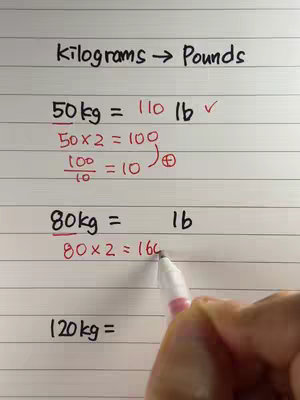 Kilograms → Pounds
50kg = 110 lb ✓
50 × 2 = 100
100/10 = 10 ⊕
80kg = lb
80 × 2 = 160
120kg =